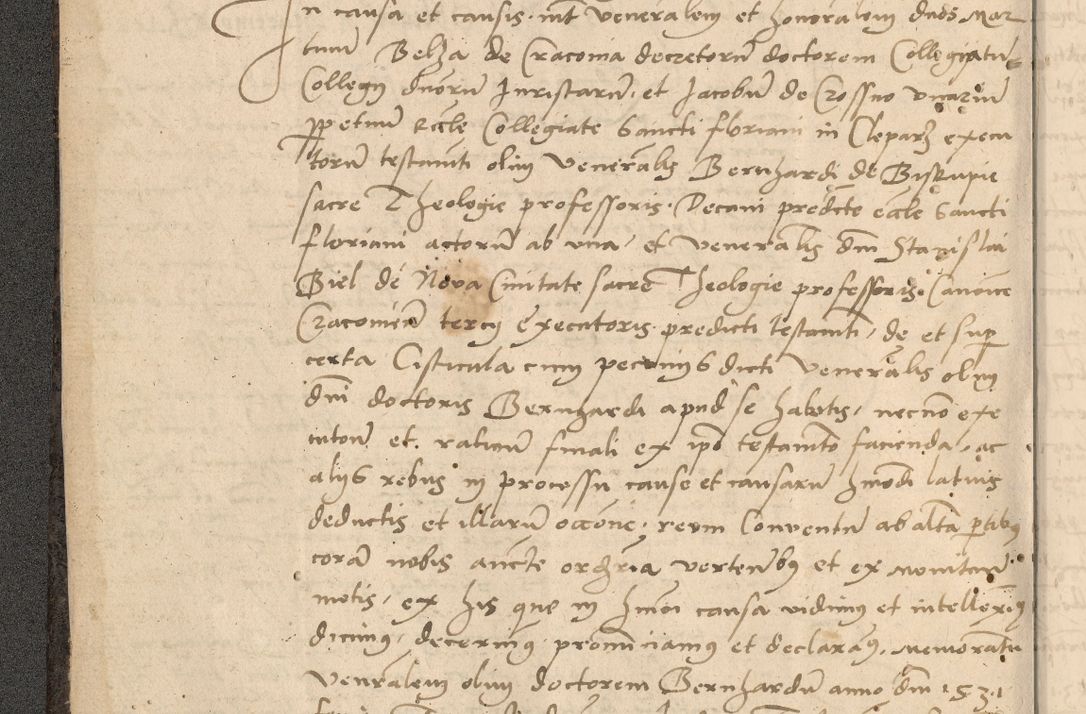 In causa et causis int veneralem et honoralem dnos Mar
tinum Belza de Cracovia decretorum doctorem Collegiatum
Collegy dnorum Juristarum et Jacobum de Crossno vicarium
ppetuum Eccle Collegiate Sancti Floriani in Cleparz execu
torum testamti olim veneralis Bernhardi de Biskupie
sacre Theologie professoris Decani predicte eccle Sancti
Floriani actorum ab una, et veneralis dnm Stanislai
Biel de Nova Civitate sacre Theologie professoris Canonice
Cracovien tercy executoris predicti testamti, de et sup
certa Cisticula cum pecuniis dicti veneralis olim
dni doctoris Bernhardi apud se habitis, necno exe
cutone et ratione finali ex ipo testamto facienda, ac
aliis rebus in processu cause et causarum hmodi latius
deductis et illarum occone, reum Conventum ab altera ptibus
coram nobis aucte ordria vertentibus et ex monitum
motis, ex his que in hmoi causa vidimus et intelleximus
dicimus, decernimus pronunciamus et declaramus, memoratum
venralem olim doctorem Bernhardum anno dni 1531